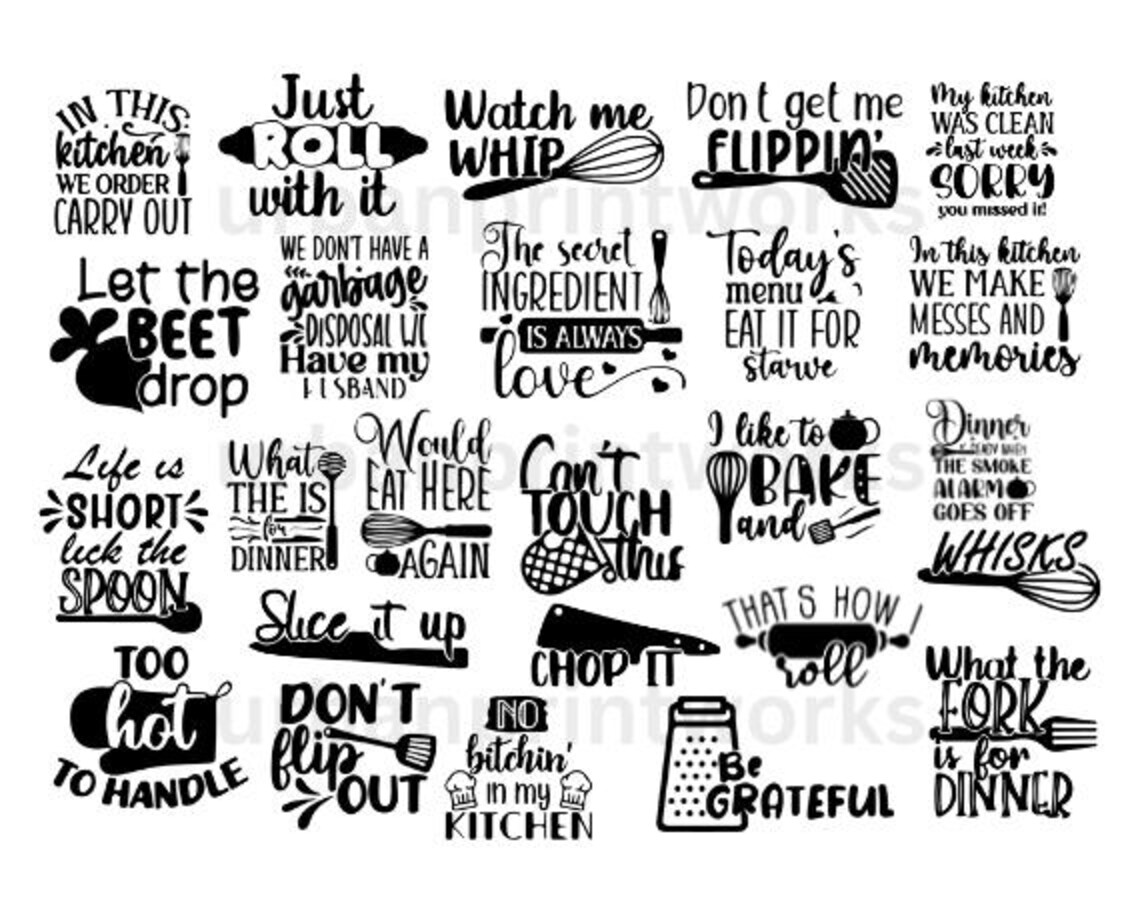 IN THIS
kitchen
WE ORDER
CARRY OUT
Just
ROLL
with it
Watch me
WHIP
Don t get me
FLIPPIN'
My kitchen
WAS CLEAN
last week
SORRY
you missed it!
urbanprintworks
Let the
BEET
drop
WE DON'T HAVE A
garbage
DISPOSAL WE
Have my
HUSBAND
The secret
INGREDIENT
IS ALWAYS
love
Today's
menu
EAT IT FOR
starve
In this kitchen
WE MAKE
MESSES AND
memories
Life is
SHORT
lick the
SPOON
What
THE IS
for
DINNER
Would
EAT HERE
AGAIN
Can't
TOUCH
this
I like to
BAKE
and
Dinner
READY WHEN
THE SMOKE
ALARM
GOES OFF
urbanprintworks
WHISKS
Slice it up
CHOP IT
THAT S HOW I
roll
TOO
hot
TO HANDLE
DON'T
flip
OUT
NO
bitchin'
in my
KITCHEN
Be
GRATEFUL
What the
FORK
is for
DINNER
urbanprintworks